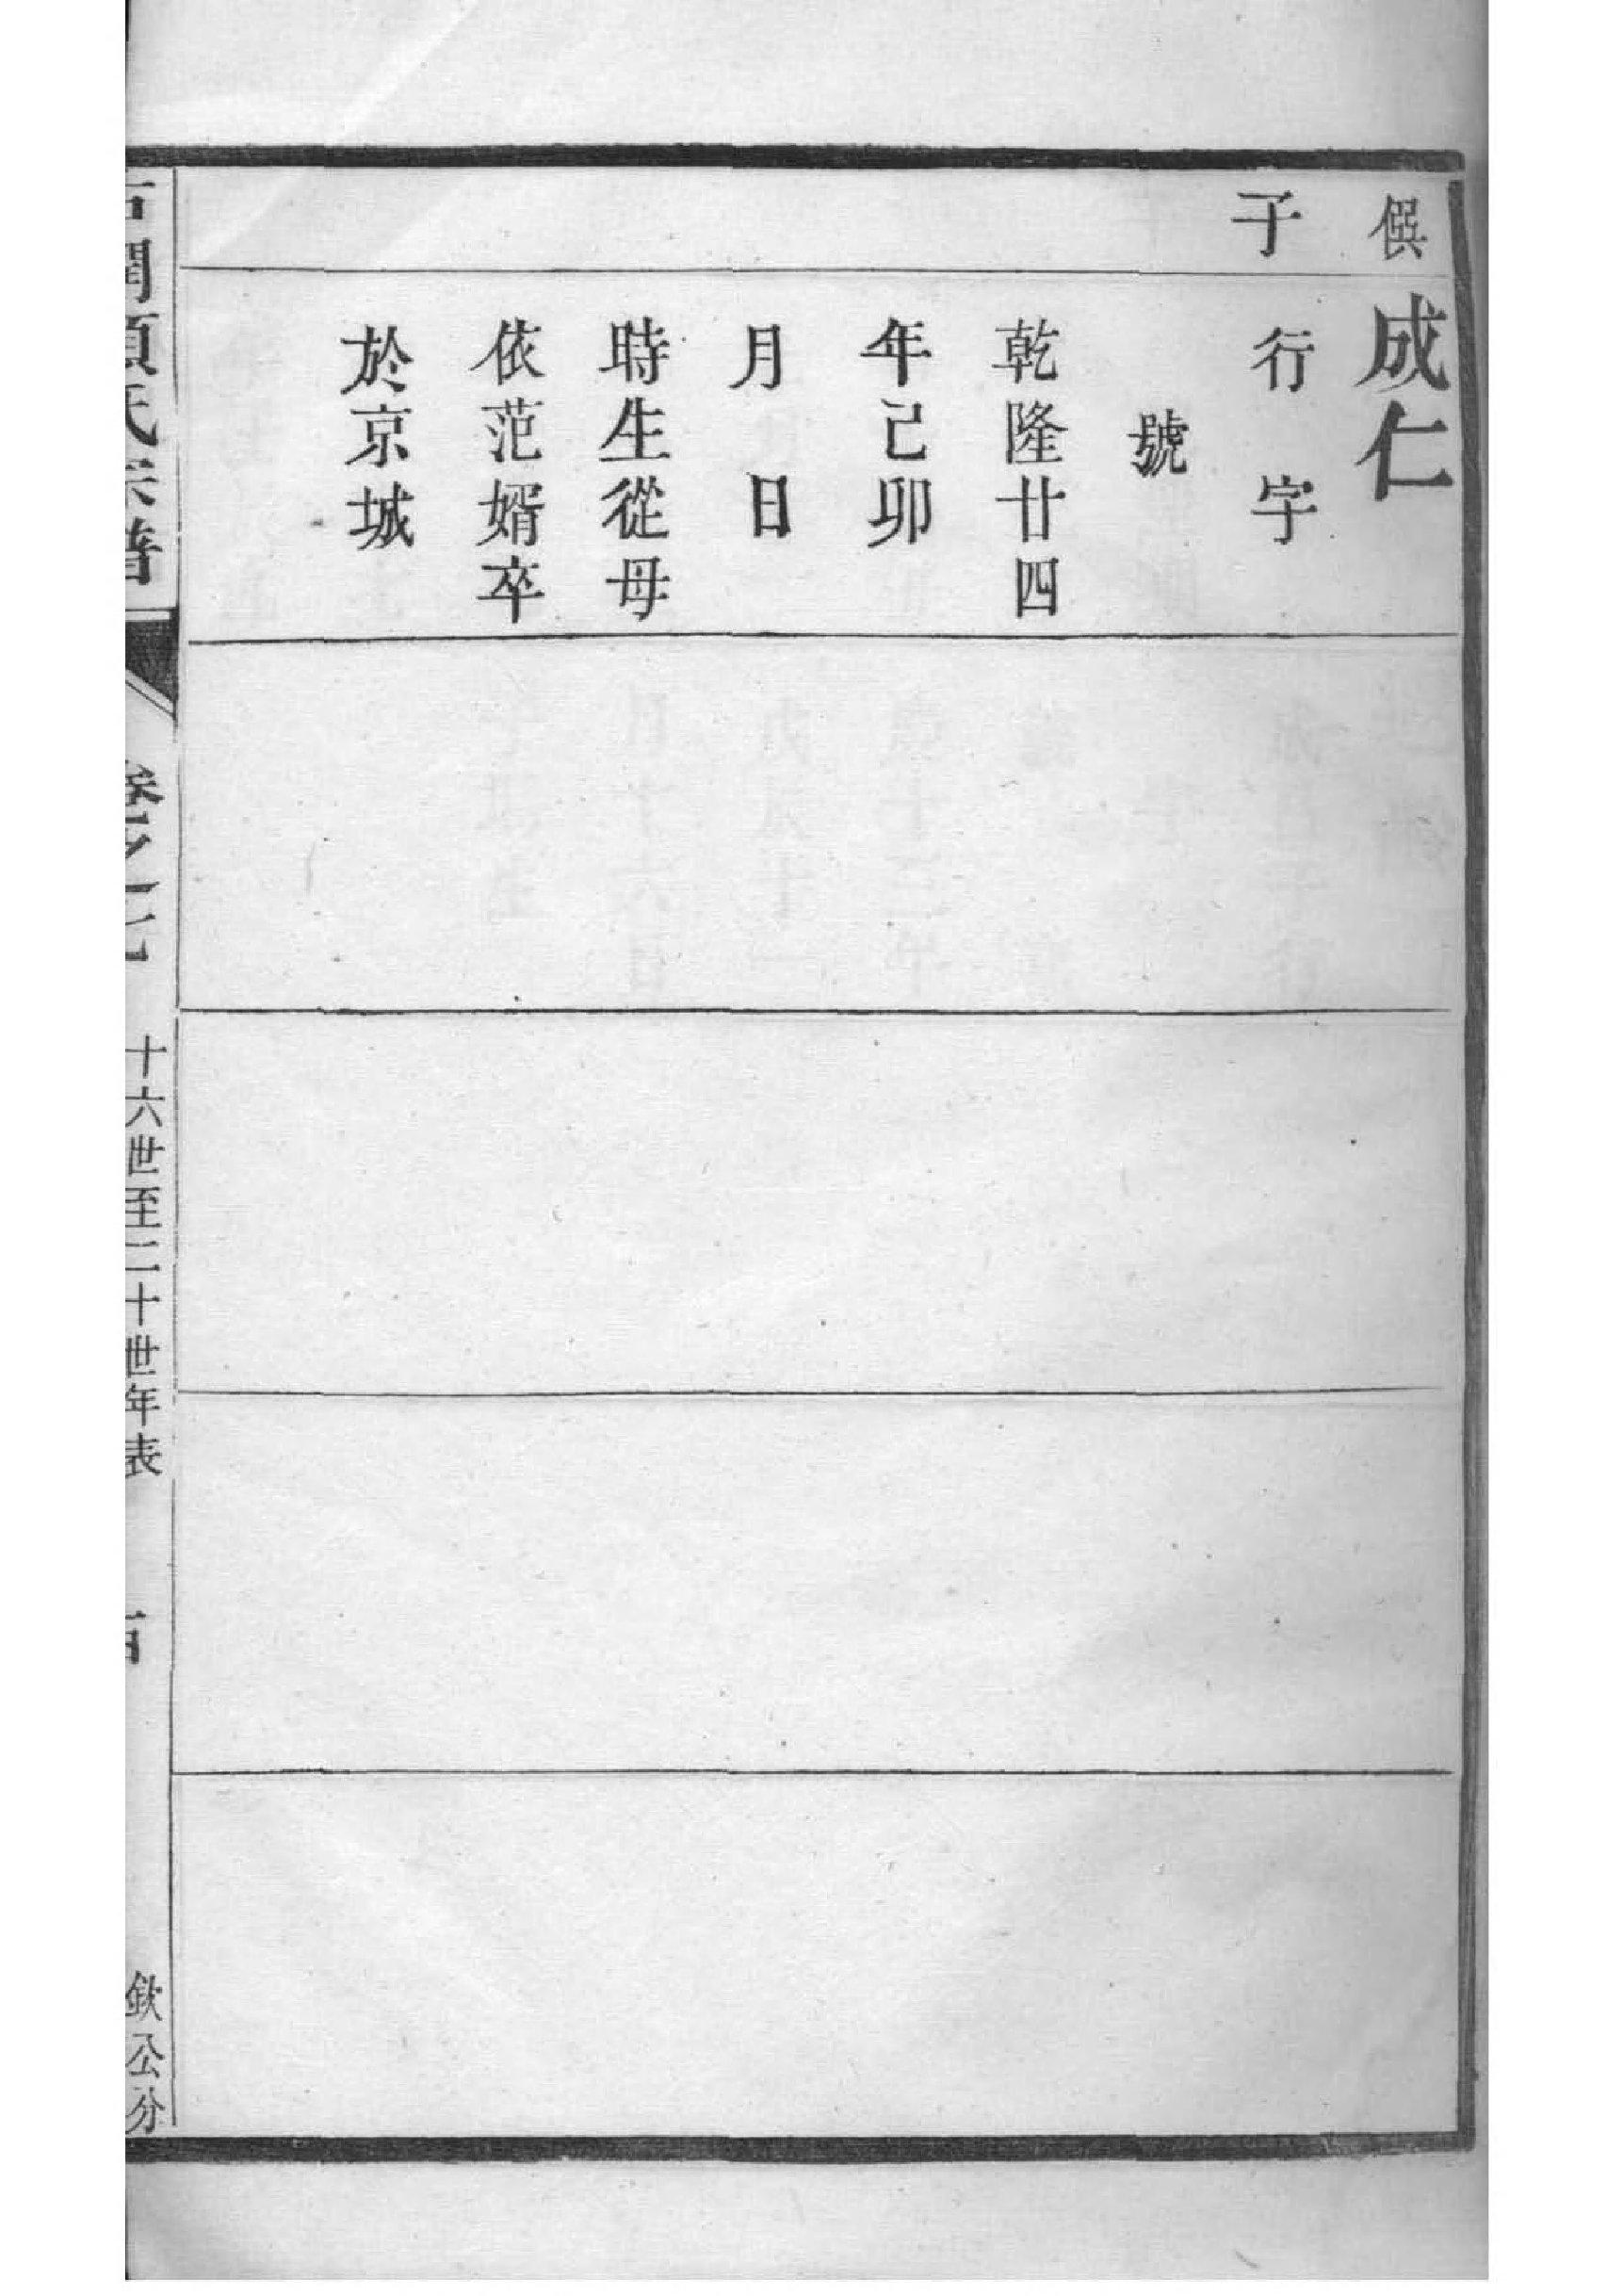 僎
子
成仁
行 字
號
乾隆廿四
年己卯
月 日
時生從母
依范婿卒
於京城
氏宗譜
十六世至二十世年表
欽公分